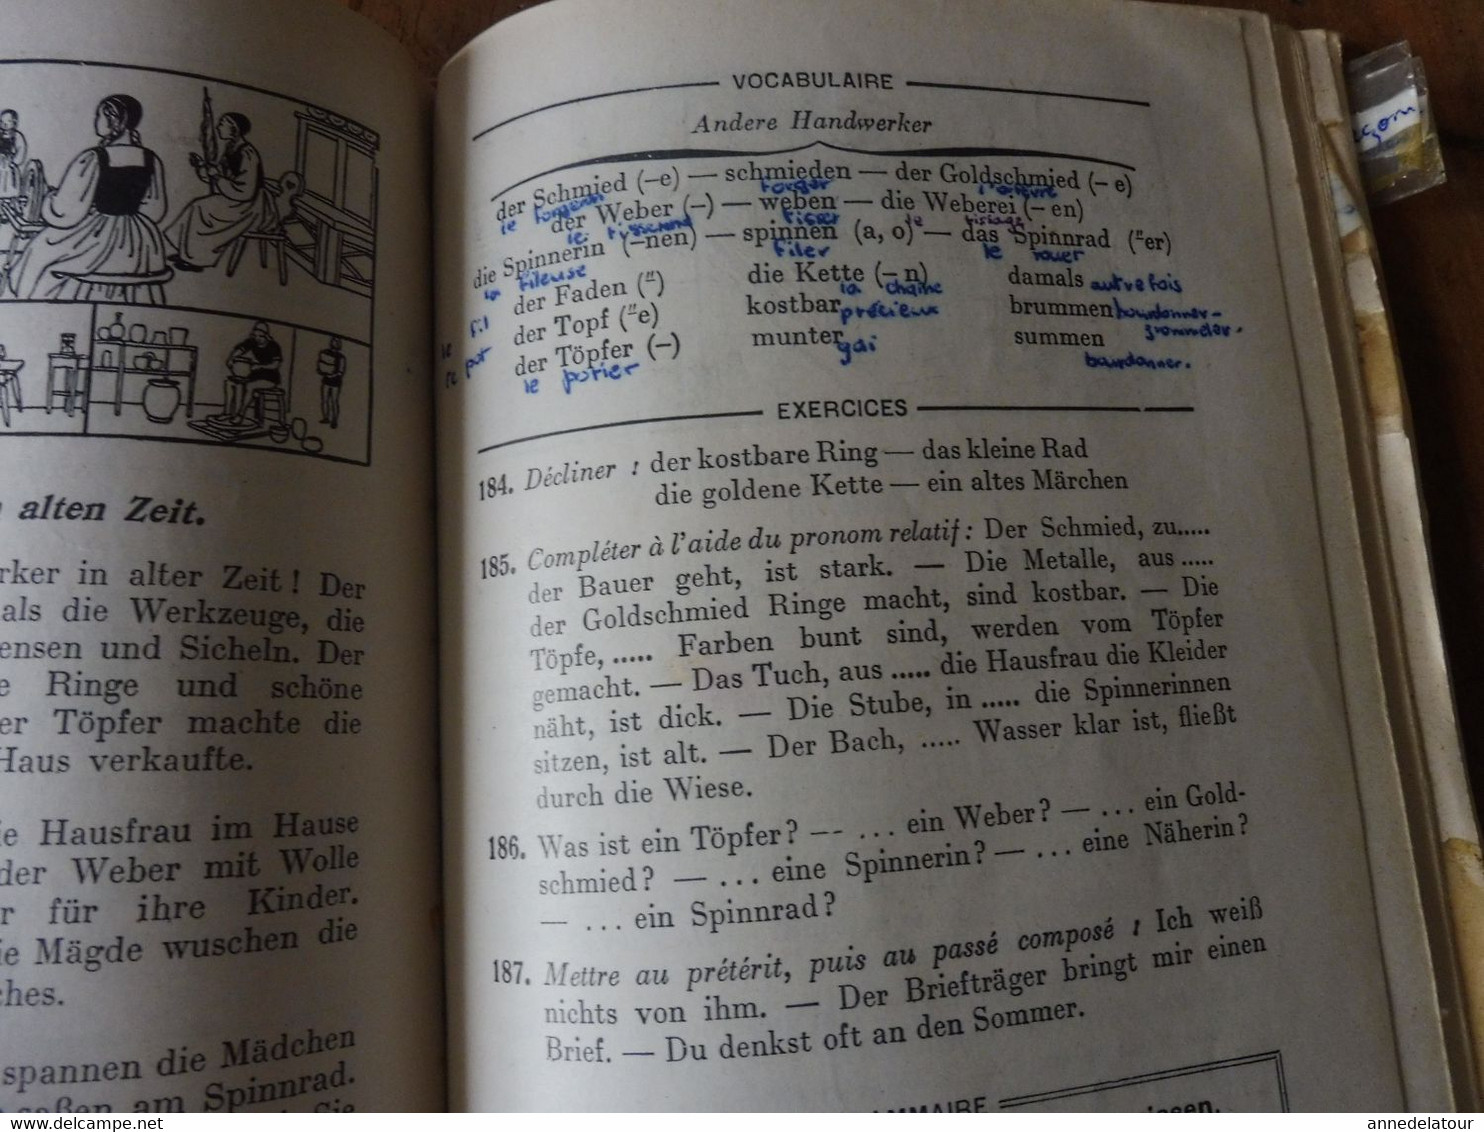 alten Zeit.
rker in alter Zeit! Der
als die Werkzeuge, die
ensen und Sicheln. Der
e Ringe und schöne
er Töpfer machte die
Haus verkaufte.
ie Hausfrau im Hause
der Weber mit Wolle
r für ihre Kinder.
ie Mägde wuschen die
ches.
spannen die Mädchen
saßen am Spinnrad.
Sie
VOCABULAIRE
Andere Handwerker
der Schmied (–e) — schmieden — der Goldschmied (– e)
le forgeron forger l'orfèvre
der Weber (–) — weben — die Weberei (– en)
le tisserand tisser le tissage
die Spinnerin (–nen) — spinnen (a, o) — das Spinnrad (¨er)
la fileuse filer le rouet
der Faden (¨) die Kette (– n) damals autrefois
le fil la chaîne
der Topf (¨e) kostbar précieux brummen bourdonner-
le pot grommeler.
der Töpfer (–) munter gai summen
le potier bourdonner.
EXERCICES
184. Décliner : der kostbare Ring — das kleine Rad
die goldene Kette — ein altes Märchen
185. Compléter à l'aide du pronom relatif : Der Schmied, zu.....
der Bauer geht, ist stark. — Die Metalle, aus .....
der Goldschmied Ringe macht, sind kostbar. — Die
Töpfe, ..... Farben bunt sind, werden vom Töpfer
gemacht. — Das Tuch, aus ..... die Hausfrau die Kleider
näht, ist dick. — Die Stube, in ..... die Spinnerinnen
sitzen, ist alt. — Der Bach, ..... Wasser klar ist, fließt
durch die Wiese.
186. Was ist ein Töpfer? — ... ein Weber? — ... ein Gold-
schmied? — ... eine Spinnerin? — ... eine Näherin?
— ... ein Spinnrad?
187. Mettre au prétérit, puis au passé composé : Ich weiß
nichts von ihm. — Der Briefträger bringt mir einen
Brief. — Du denkst oft an den Sommer.
MMAIRE
issen.
www.delcampe.net
annedelatour